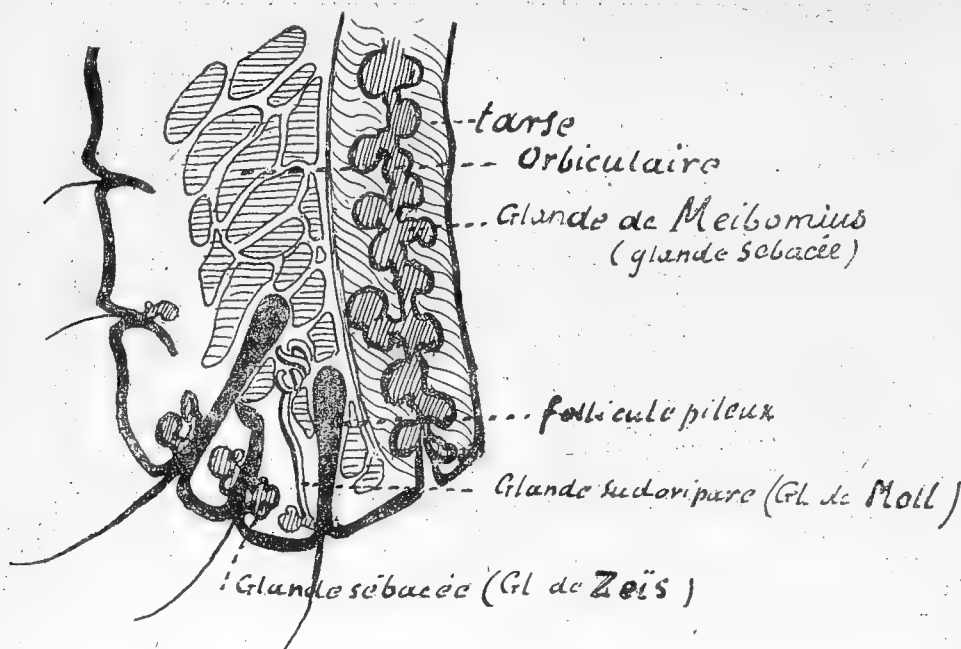 tarse
Orbiculaire
Glande de Meibomius
(glande sébacée)
follicule pileux
Glande sudoripare (Gl. de Moll)
Glande sébacée (Gl de Zeïs)